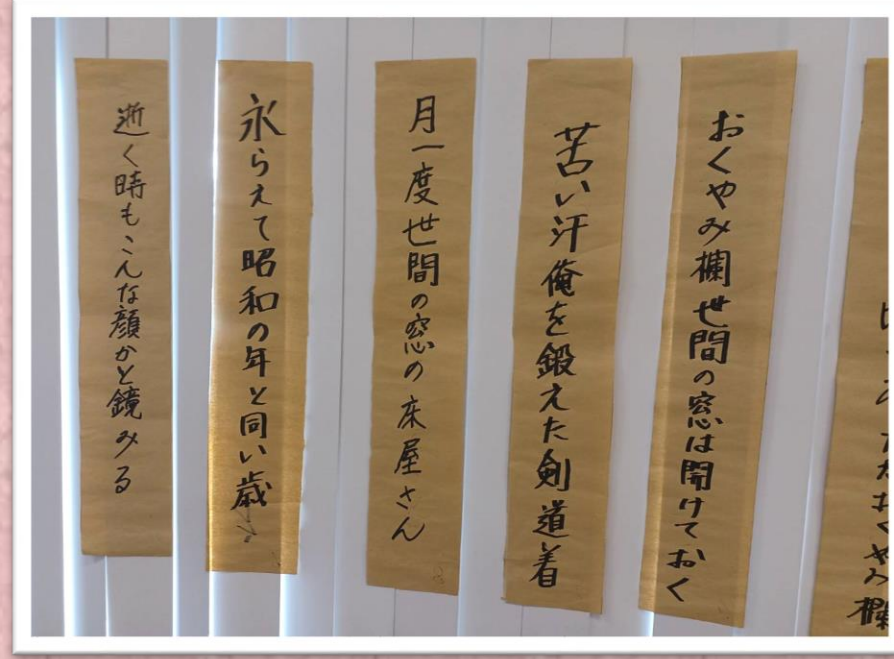 おくやみ欄
おくやみ欄世間の窓は開けておく
苦い汗俺を鍛えた剣道着
月一度世間の窓の床屋さん
永らえて昭和の年と同い歳
逝く時もこんな顔かと鏡みる